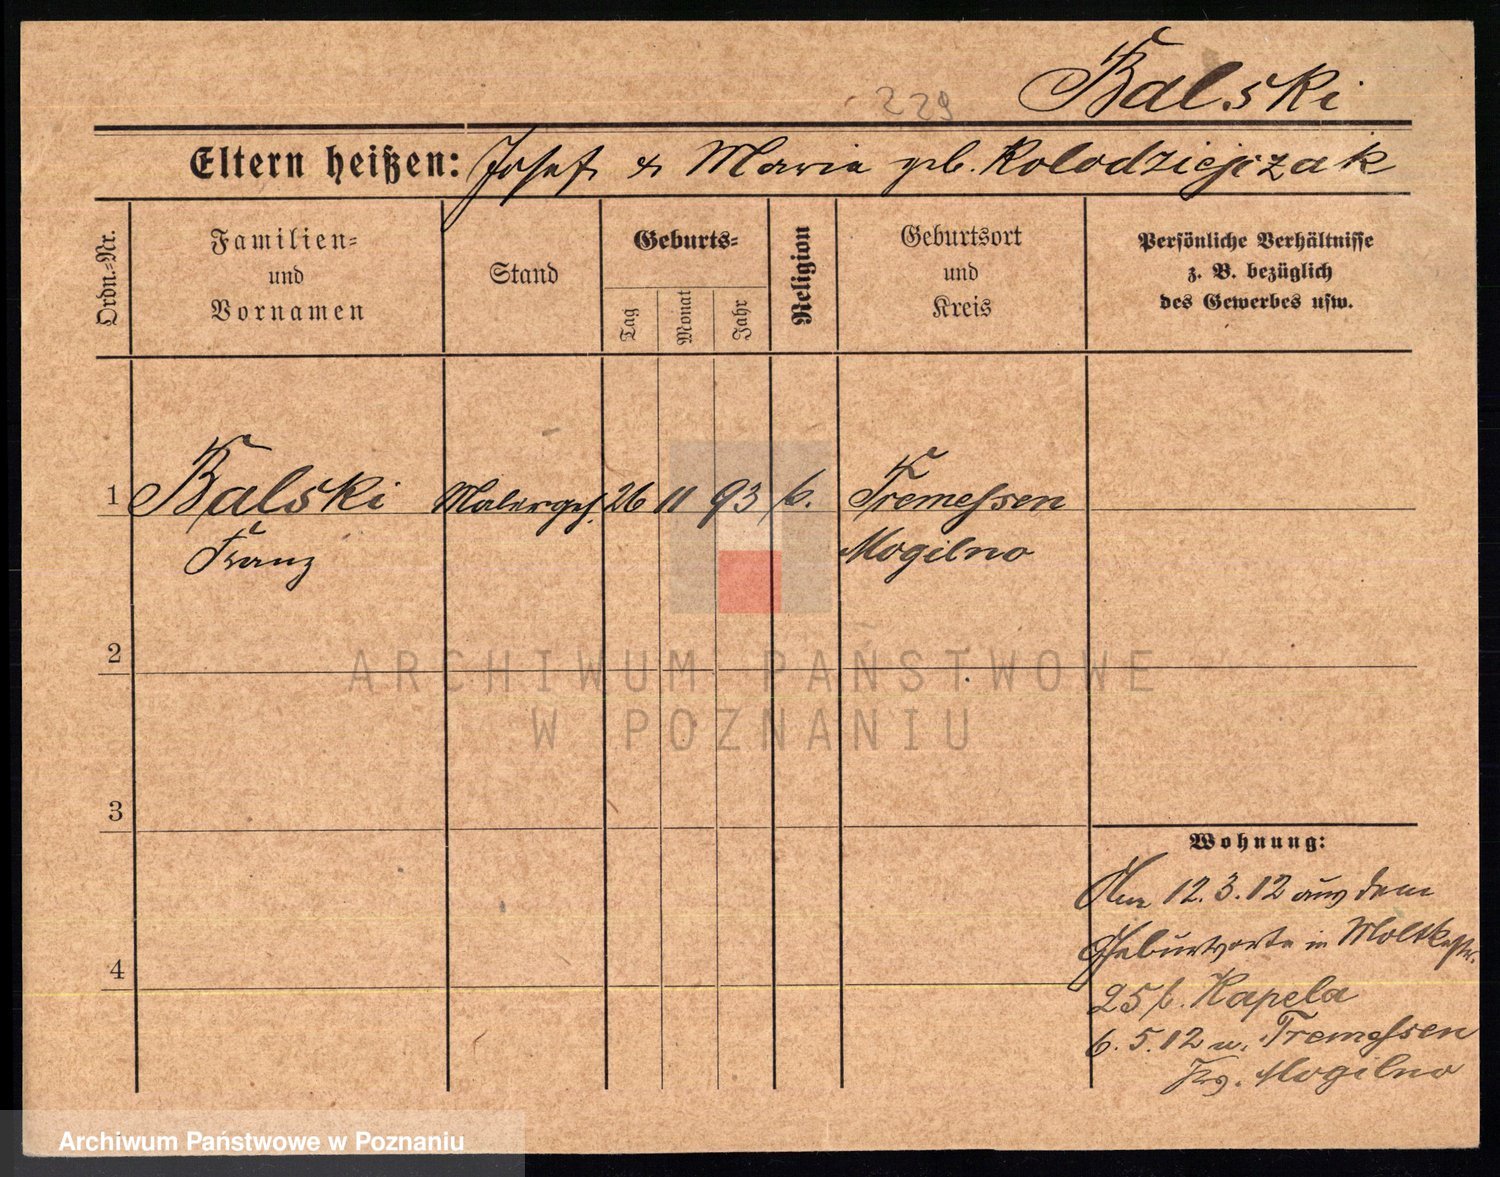 229
Balski
Eltern heißen: Josef & Maria geb. Kolodziejczak
Ordn.=Nr.
Familien=
und
Vornamen
Stand
Geburts=
Tag
Monat
Jahr
Religion
Geburtsort
und
Kreis
Persönliche Verhältnisse
z. B. bezüglich
des Gewerbes usw.
1 Balski Malergeh. 26 11 93 k. Tremessen
Franz Mogilno
2
ARCHIWUM PAŃSTWOWE
W POZNANIU
3
Wohnung:
Am 12.3.12 aus dem
Geburtsorte in Moltkestr.
25 b. Kapela
6.5.12 n. Tremessen
Kr. Mogilno
4
Archiwum Państwowe w Poznaniu